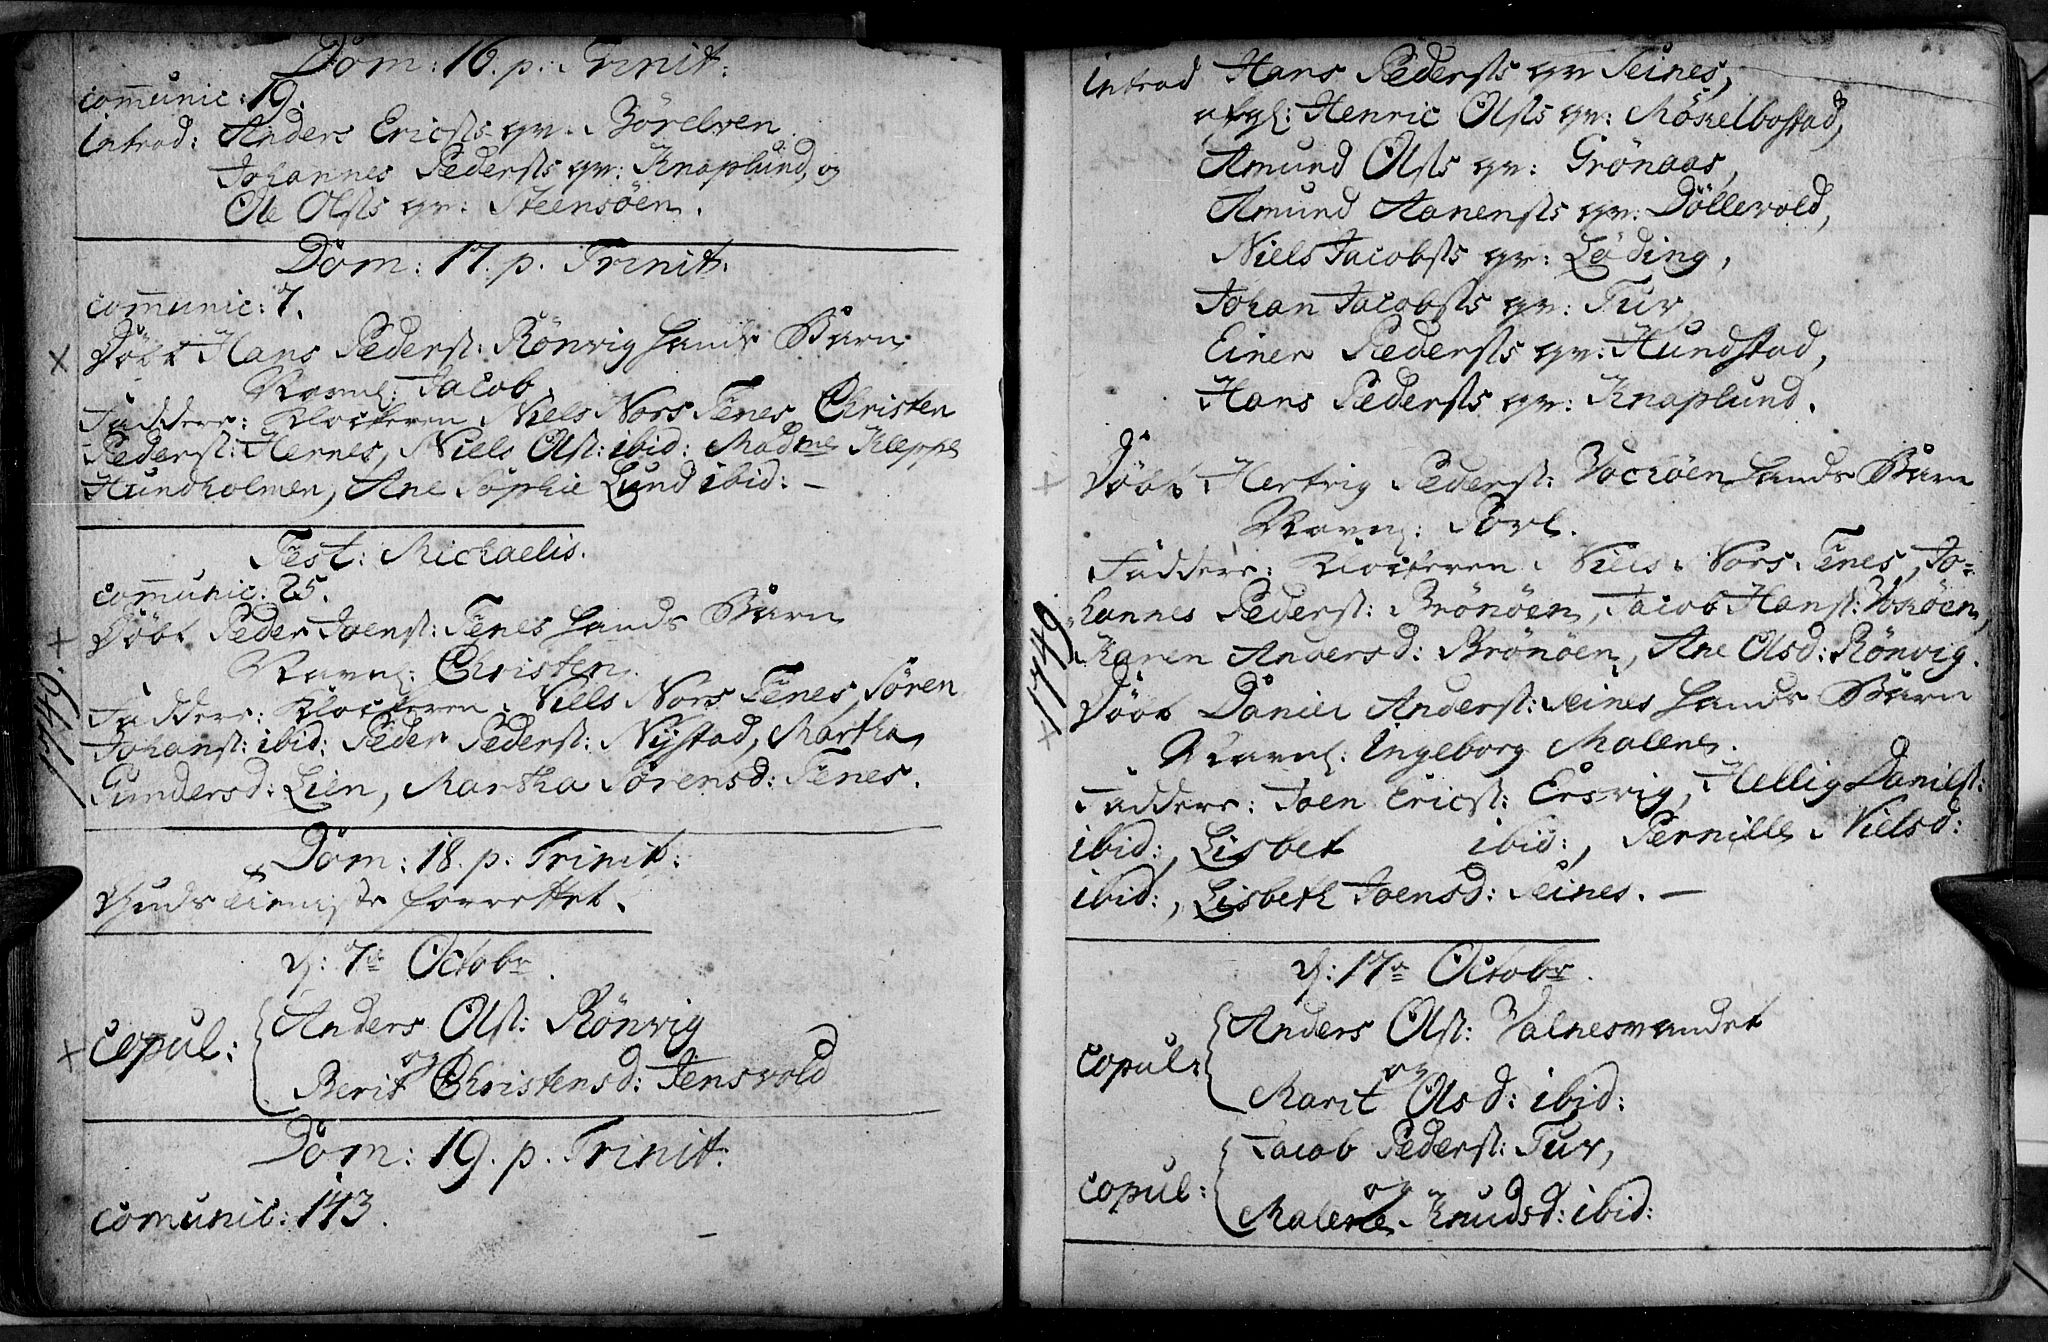 Dom: 16. p. Trinit:
communic: 19.
introd: Anders Ericsts qv: Börelven
Johannes Pedersts qv: Knaplund, og
Ole Olsts qv: Steensöen.
Dom: 17. p. Trinit:
communic: 7.
Döbt Hans Pederst: Rönvig hands Barn
Navnl: Jacob.
Faddere: Klockeren Niels Nors Fenes, Christen
Pederst: Hernes, Niels Olst: ibid: Madme Kleppe
Hundholmen, Ane Sophie Lund ibid: –
Fest: Michaelis.
communic: 25.
Döbt Peder Joenst: Fenes hands Barn
Navnl: Christen.
Faddere: Klockeren Niels Nors Fenes, Sören
Johanst: ibid: Peder Pederst: Nystad, Martha
Gundersd: Lien, Martha Sörensd: Fenes.
1749.
Dom: 18. p. Trinit:
Gudstieniste forrettet.
d: 7de Octobr.
copul: Anders Olst: Rönvig
og
Berit Christensd: Jensvold
Dom: 19. p. Trinit:
comunic: 143.
introd Hans Pedersts qv Seines,
afgl: Henric Olsts qv: Möskelbostad,
Amund Olsts qv: Grönaas,
Amund Aanensts qv: Döllevold,
Niels Jacobsts qv: Löding,
Johan Jacobsts qv: Tuv
Einer Pedersts qv: Hundstad,
Hans Pedersts qv: Knaplund.
Döbt Hertvig Pederst: Vochöen hands Barn
Navnl: Povl.
Faddere: Klockeren Niels Nors Fenes, Jo-
hannes Pederst: Brönöen, Jacob Hanst: Vohöen,
Karen Andersd: Brönöen, Ane Olsd: Rönvig.
1749.
Döbt Daniel Anderst: Seines hands Barn
Navnl: Ingeborg Malene.
Faddere: Joen Ericst: Ersvig, Hellig Danielst:
ibid:, Lisbet ibid:, Pernille Nielsd:
ibid:, Lisbeth Joensd: Seines. –
d: 17de Octobr.
copul: Anders Olst: Valnesvandet
og
Marit Olsd: ibid:
copul: Jacob Pederst: Tuv,
og
Malene Knudsd: ibid: